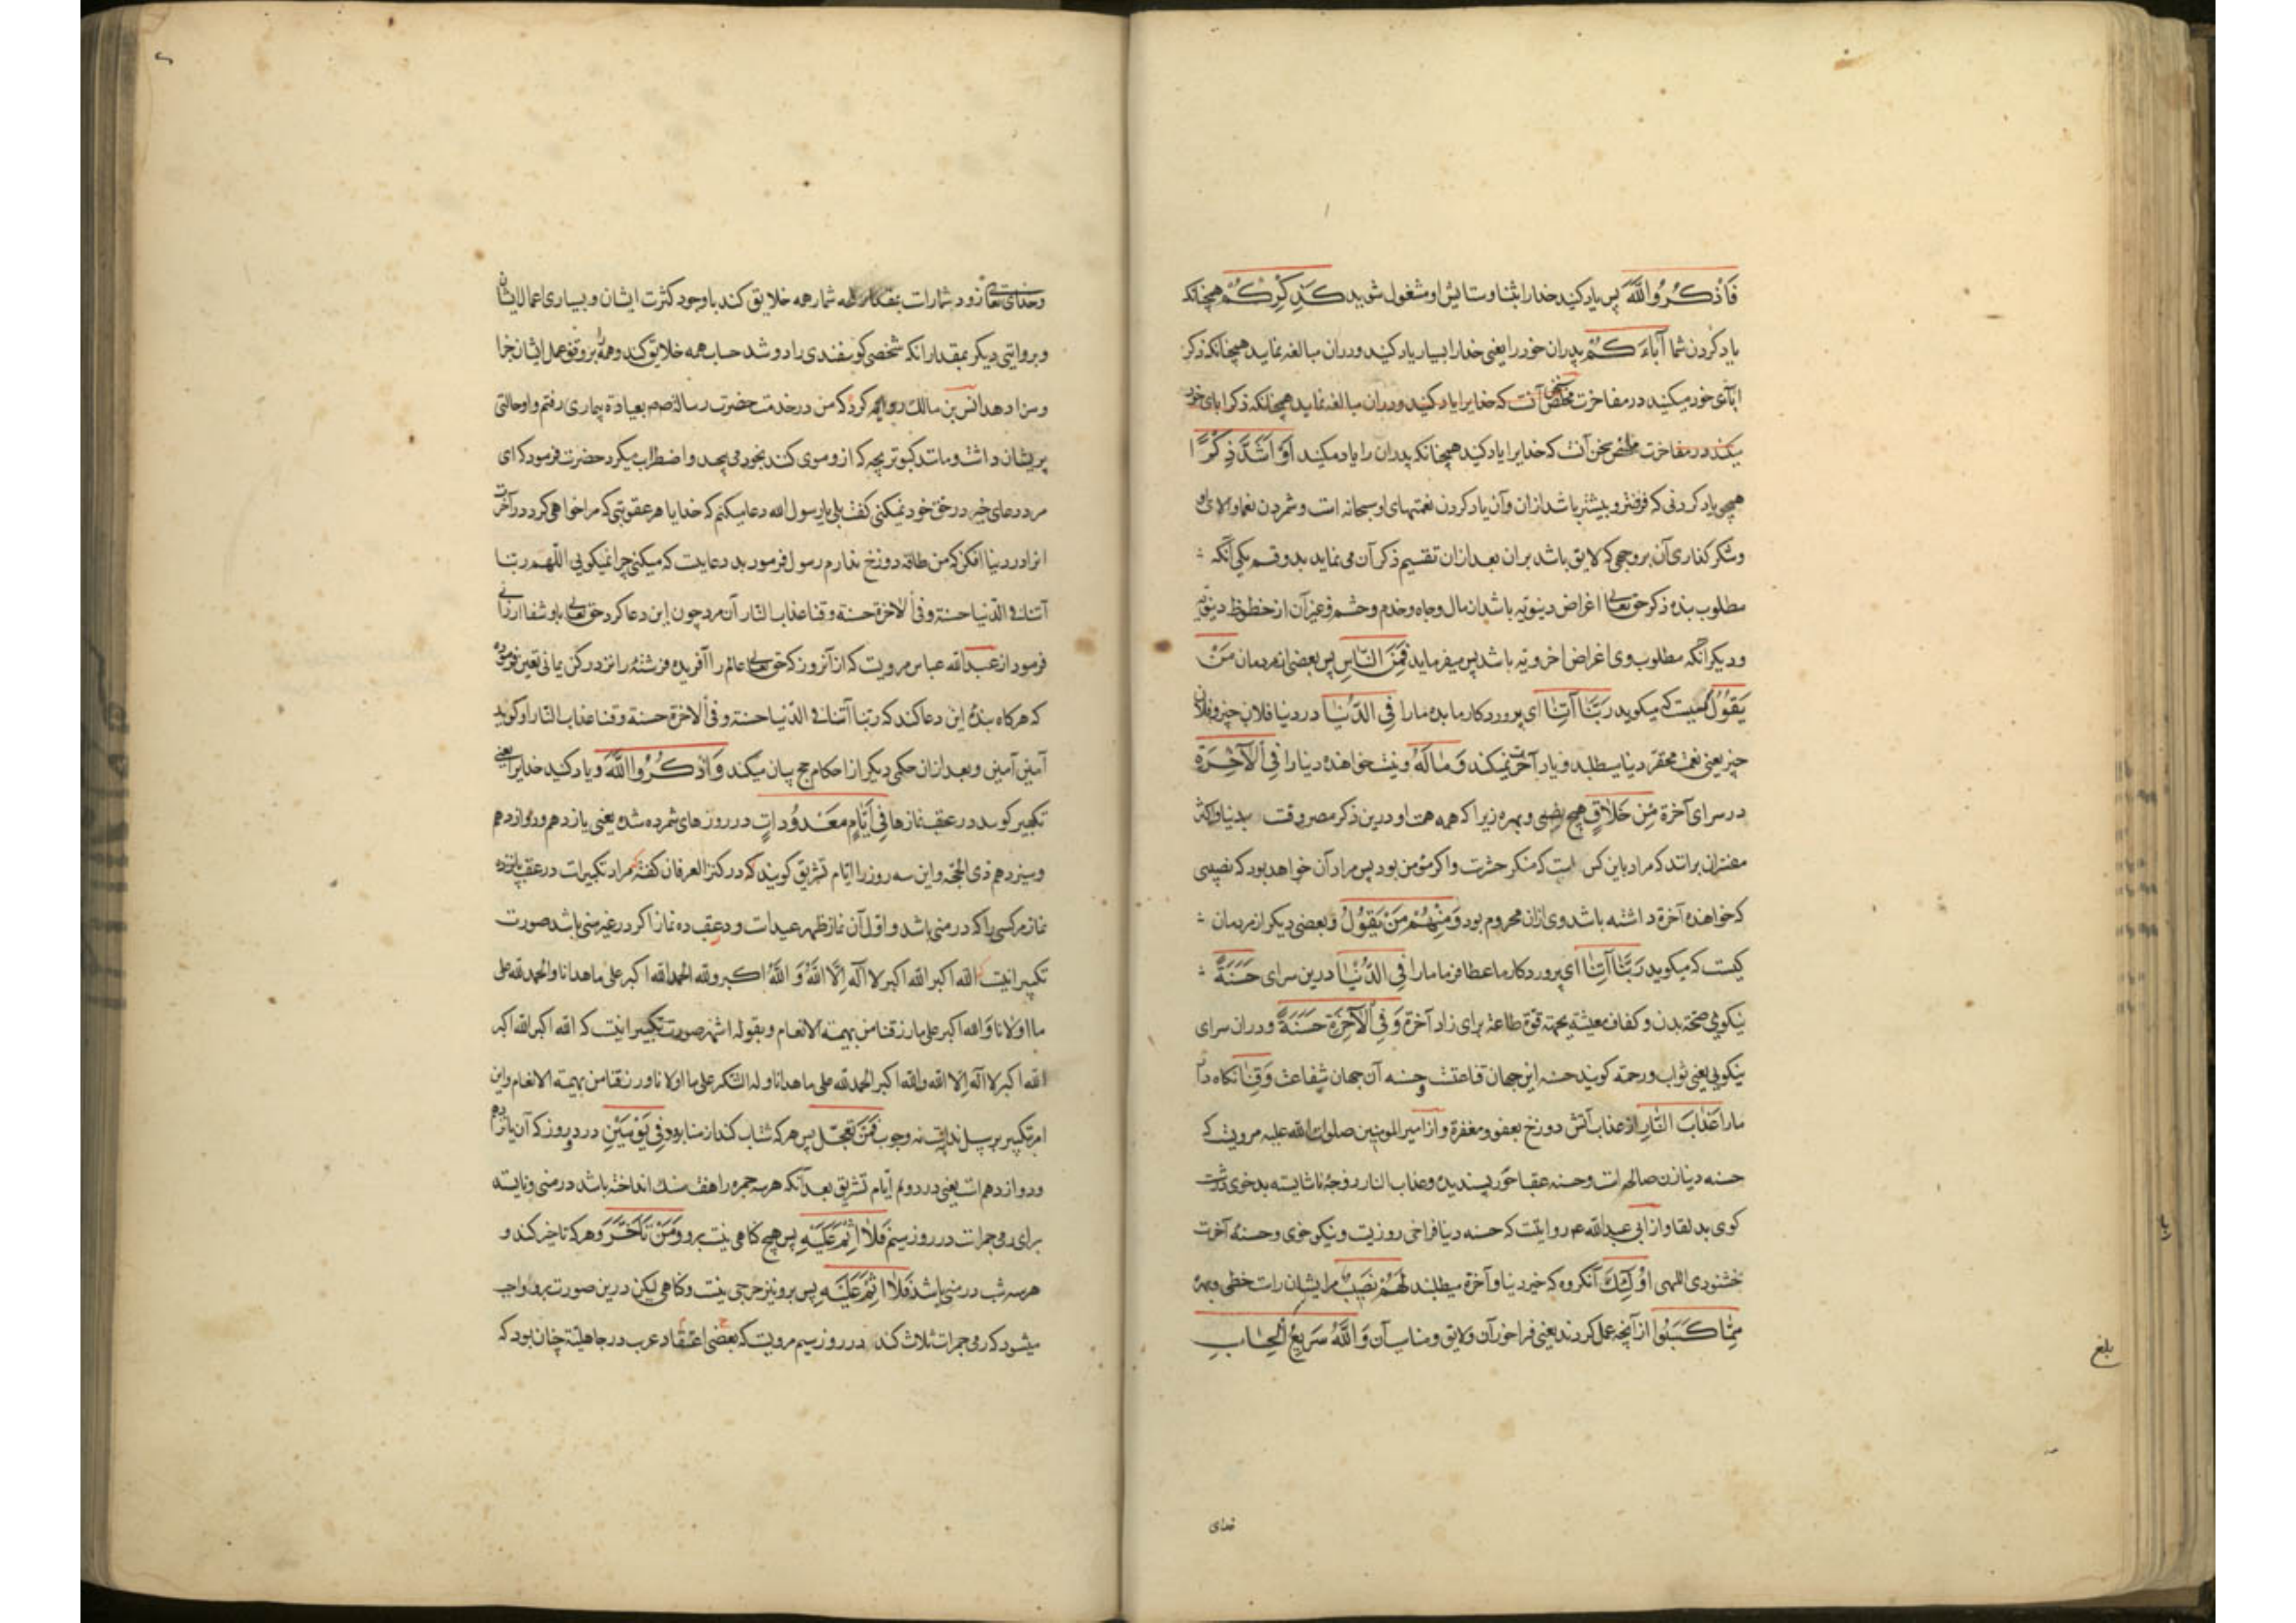 فَاذْكُرُوا اللَّهَ پس یاد کنید خدا را بثنا و ستایش او مشغول شوید كَذِكْرِكُمْ همچنانکه
یاد کردن شما آبَاءَكُمْ پدران خود را یعنی خدا را بسیار یاد کنید و در ان مبالغه نماید همچنانکه ذکر
ابآی خود میکنید در مفاخرت آنست که خدایرا یاد کنید و در ان مبالغه نماید همچنانکه ذکر ابای خود
میکنند در مفاخرت ملخص سخن آنست که خدایرا یاد کنید همچنانکه پدران را یاد میکنید أَوْ أَشَدَّ ذِكْرًا
همچو یاد کردنی که فزونتر و بیشتر باشد ازان و آن یاد کردن نعمتهای او سبحانه است و شمردن نعما و آلای او
و شکر گذاری آن بروجهی که لایق باشد بران بعد ازان تقسیم ذکر آن می نماید بدو قسم یکی آنکه
مطلوب بنده ذکر حق تعالی اغراض دینویه باشد از مال و جاه و خدم و حشم و غیر آن از حظوظ دینویه
و دیگر آنکه مطلوب وی اغراض اخرویه باشد پس میفرماید فَمِنَ النَّاسِ پس بعضی از مردمان مَنْ
يَقُولُ کسیست که میگوید رَبَّنَا آتِنَا ای پروردگار ما بده ما را فِي الدُّنْيَا در دنیا فلان چیز و فلان
چیز یعنی نعمت محقر دنیا میطلبد و یاد آخرت نمیکند وَمَا لَهُ و نیست خواهنده دنیا را فِي الْآخِرَةِ
در سرای آخرة مِنْ خَلَاقٍ هیچ نصیبی و بهره زیرا که همه همت او درین ذکر مصروفست بدنیا و اکثر
مفسران برانند که مراد باین کس است که منکر حشرست و اگر مؤمن بود پس مراد آن خواهد بود که نصیبی
که خواهنده آخرة داشته باشد وی ازان محروم بود وَمِنْهُمْ مَنْ يَقُولُ و بعضی دیگر از مردمان
کیست که میگوید رَبَّنَا آتِنَا ای پروردگار ما عطا فرما ما را فِي الدُّنْيَا درین سرای حَسَنَةً
نیکویی صحة بدن و کفاف معیشة بجهة قوة طاعة برای زاد آخرة وَفِي الْآخِرَةِ حَسَنَةً و دران سرای
نیکویی یعنی ثواب و رحمة گویند حسنه این جهان قناعتست و حسنه آن جهان شفاعت وَقِنَا نگاه دار
ما را عَذَابَ النَّارِ از عذاب آتش دوزخ بعفو و مغفرة و از امیر المومنین صلوات الله علیه مرویست که
حسنه دنیا زن صالحه است و حسنه عقبا حور پسندیده و عذاب النار زوجهٔ ناشایسته بدخوی زشت
کوی بد لقا و از ابی عبد الله عم روایتست که حسنه دنیا فراخی روزیست و نیکو خوی و حسنهٔ آخرت
خشنودی اللهی أُولَئِكَ آنگروه که خیر دنیا و آخرة میطلبند لَهُمْ نَصِيبٌ مرایشان راست حظی و بهره
مِمَّا كَسَبُوا از آنچه عمل کردند یعنی فراخور آن و لایق و مناسب آن وَاللَّهُ سَرِيعُ الْحِسَابِ
خدای
بلغ
و خدای تعالی زود شمارست بمقدار لمحه شمار همه خلایق کند باوجود کثرت ایشان و بسیاری اعمال ایشان
و بروایتی دیگر بمقدار آنکه شخصی گوسفندی را دوشد حساب همه خلایق کند و همه را بر وفق عمل ایشان جزا
و سزا دهد انس بن مالک روایة کرد که من در خدمت حضرت رسالة صم بعیادة بیماری رفتم و او حالتی
پریشان داشت و مانند کبوتر بچه که از و موی کنند بخود می پیچید و اضطراب میکرد حضرت فرمود که ای
مرد دعای خیر در حق خود نمیکنی گفت بلی یا رسول الله دعا میکنم که خدایا هر عقوبتی که مرا خواهی کرد در آخرت
انرا در دنیا افکن که من طاقة دوزخ ندارم رسول فرمود بد دعاییست که میکنی چرا نمیگویی اللهم ربنا
آتنا فی الدنیا حسنة و فی الاخرة حسنة و قنا عذاب النار آن مرد چون این دعا کرد حق تعالی باو شفا ارزانی
فرمود از عبد الله عباس مرویست که از آنروز که حق تعالی عالم را آفریده فرشتهٔ را نزد رکن یمانی تعین فرموده
که هرگاه بندهٔ این دعا کند که ربنا آتنا فی الدنیا حسنة و فی الاخرة حسنة و قنا عذاب النار او گوید
آمین آمین و بعد ازان حکمی دیگر از احکام حج بیان میکند وَاذْكُرُوا اللَّهَ و یاد کنید خدایرا یعنی
تکبیر گویید در عقب نمازها فِي أَيَّامٍ مَعْدُودَاتٍ در روزهای شمرده شده یعنی یازدهم و دوازدهم
و سیزدهم ذی الحجه و این سه روز را ایام تشریق گویند که در کنز العرفان گفته مراد تکبیرات در عقب پانزده
نماز مر کسی را که در منی باشد و اول آن نماز ظهر عیدست و در عقب ده نماز اگر در غیر منی باشد صورت
تکبیر اینست الله اکبر الله اکبر لا اله إلّا اللهُ وَ اللهُ اکبر ولله الحمد الله اکبر علی ما هدانا والحمد لله علی
ما اولانا وَ الله اکبر علی ما رزقنا من بهیمة الانعام و بقوله اشهر صورت تکبیر اینست که الله اکبر الله اکبر
الله اکبر لا اله الا الله والله اکبر الحمد لله علی ما هدانا وله الشکر علی ما اولانا و رزقنا من بهیمة الانعام و این
امر تکبیر بر سبیل ندبست نه وجوب فَمَنْ تَعَجَّلَ پس هر که شتاب کند از منا بود فِي يَوْمَيْنِ در دو روز که آن یازدهم
و دوازدهم است یعنی در دویم ایام تشریق بعد آنکه هر سه جمره را هفت سنک انداخته باشد در منی و نایسته
برای رمی جمرات در روز سیم فَلَا إِثْمَ عَلَيْهِ پس هیچ گناهی نیست برو وَمَنْ تَأَخَّرَ و هر که تاخیر کند و
هر سه شب در منی باشد فَلَا إِثْمَ عَلَيْهِ پس برو نیز حرجی نیست و گناهی لیکن درین صورت برو واجب
میشود که رمی جمرات ثلاث کند در روز سیم مرویست که بعضی اعتقاد عرب در جاهلیة چنان بود که